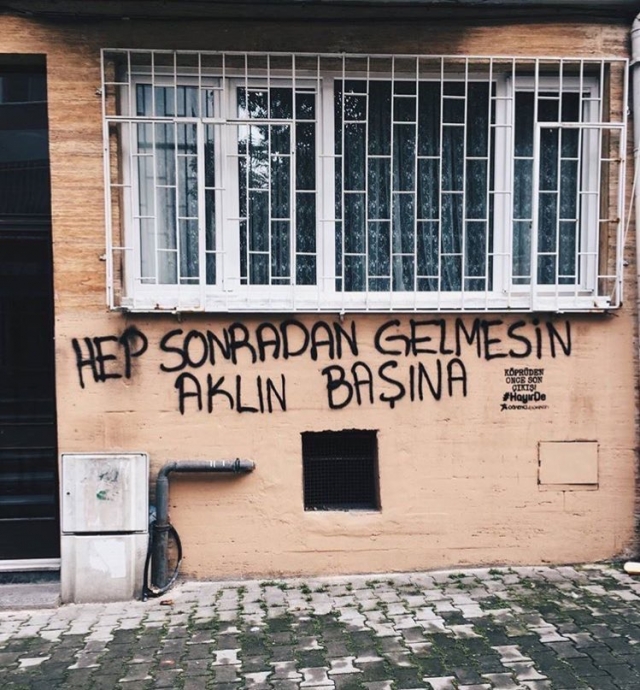 HEP SONRADAN GELMESİN
AKLIN BAŞINA
KÖPRÜDEN
ÖNCE SON
ÇIKIŞ!
#HayırDe